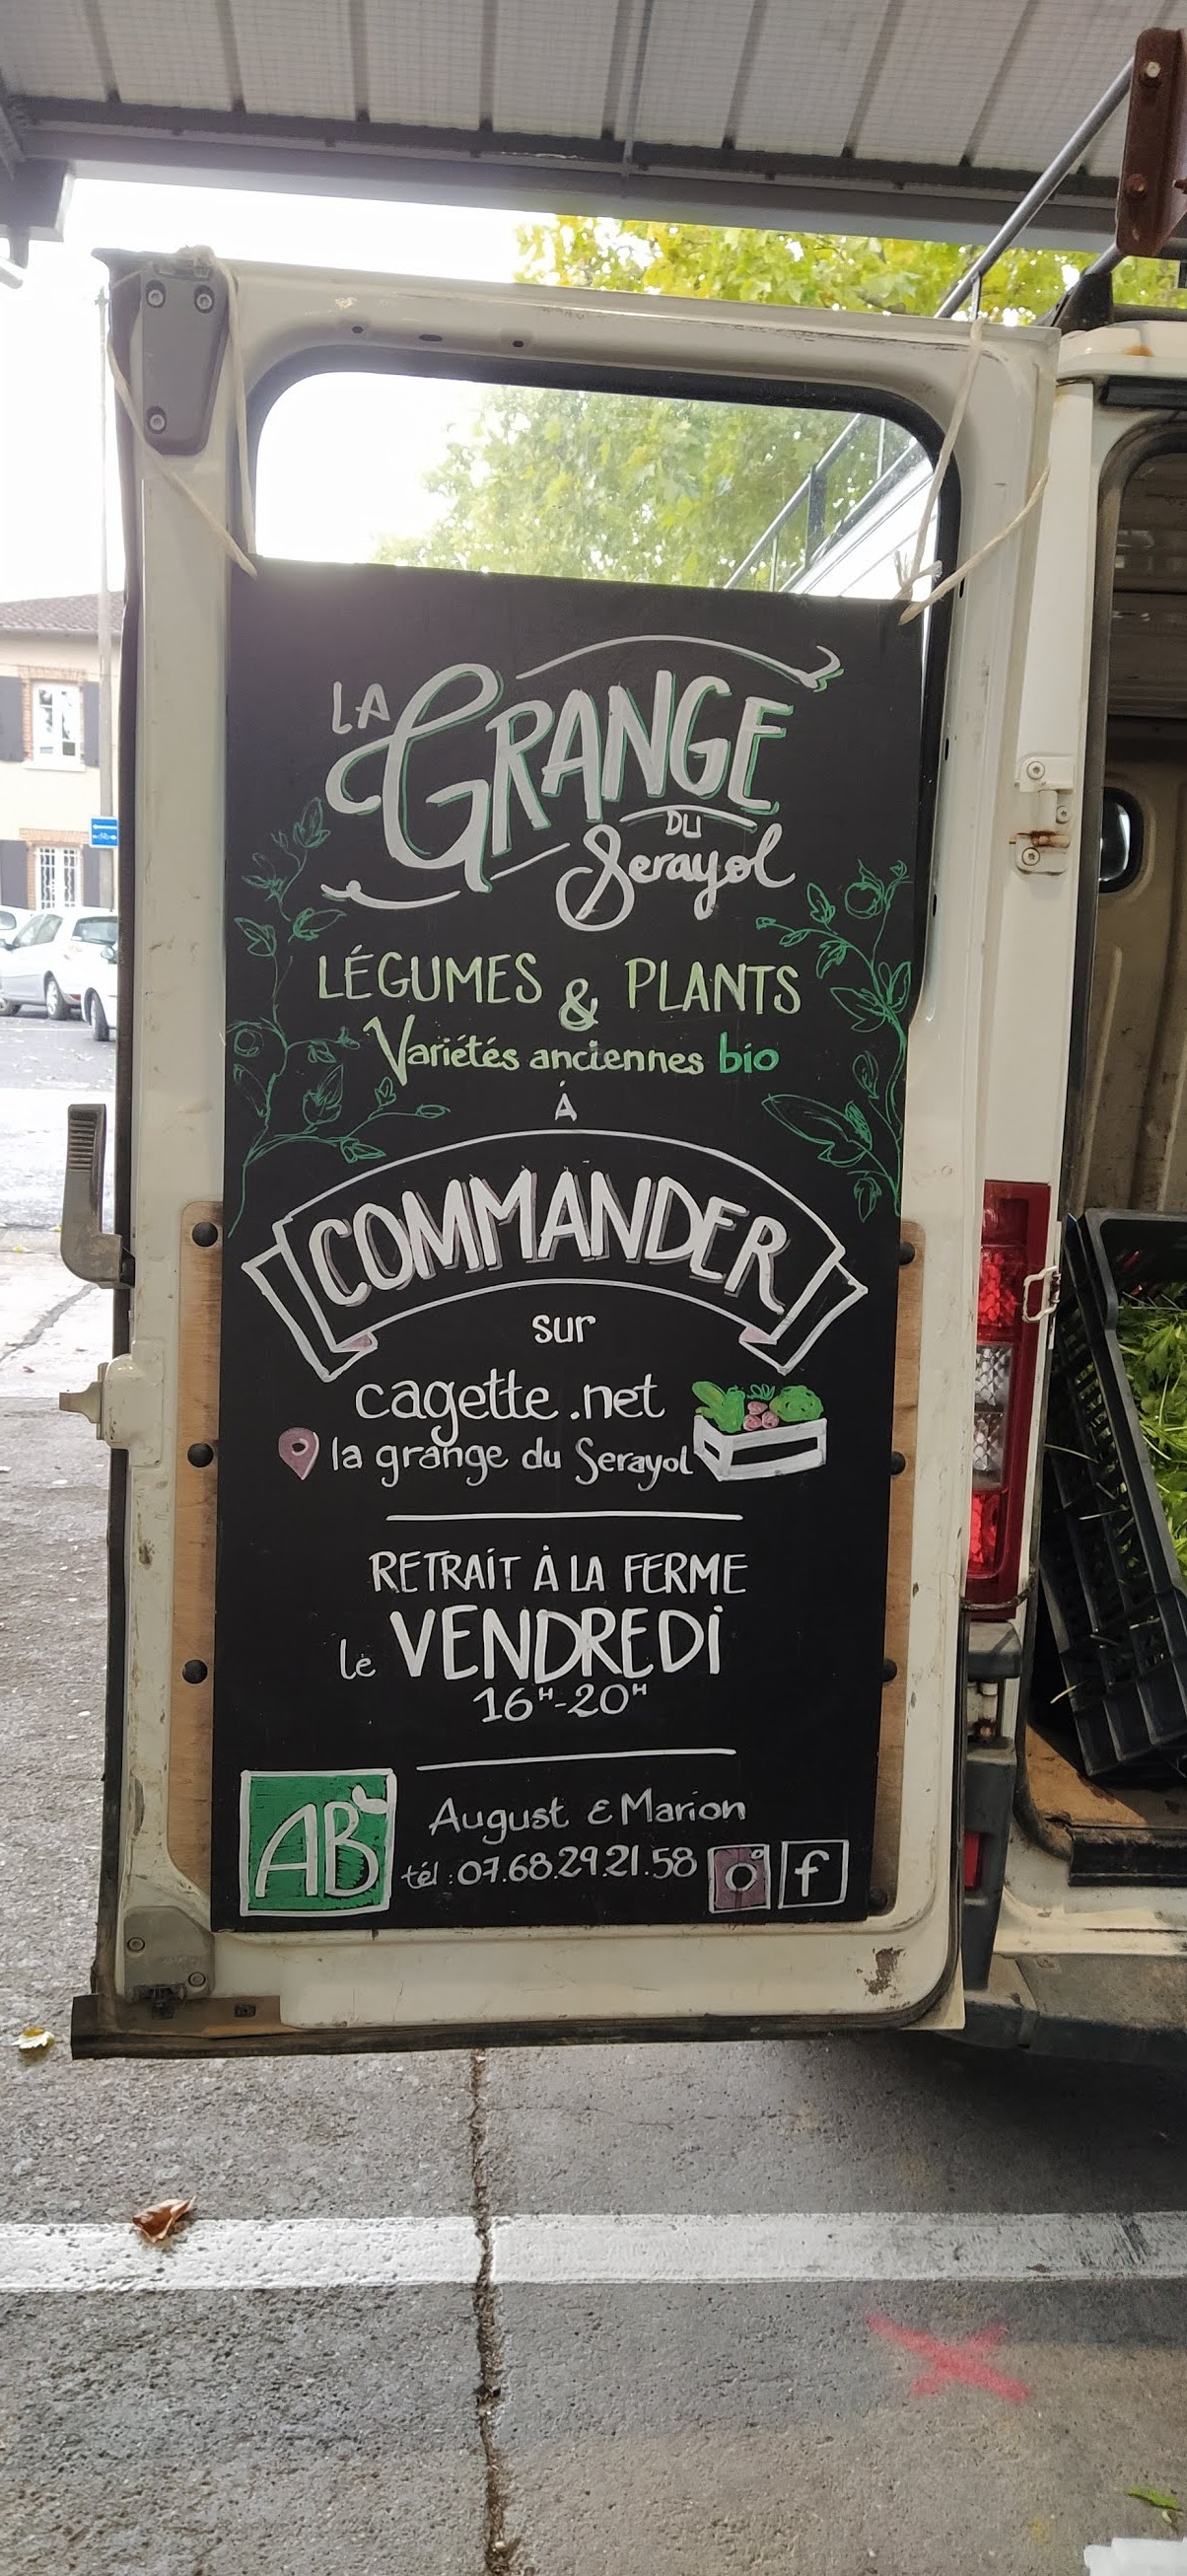 LA GRANGE
DU
Serayol
LÉGUMES & PLANTS
Variétés anciennes bio
À
COMMANDER
sur
cagette.net
la grange du Serayol
RETRAIT À LA FERME
le VENDREDI
16H-20H
AB
August & Marion
tél : 07.68.29.21.58
f